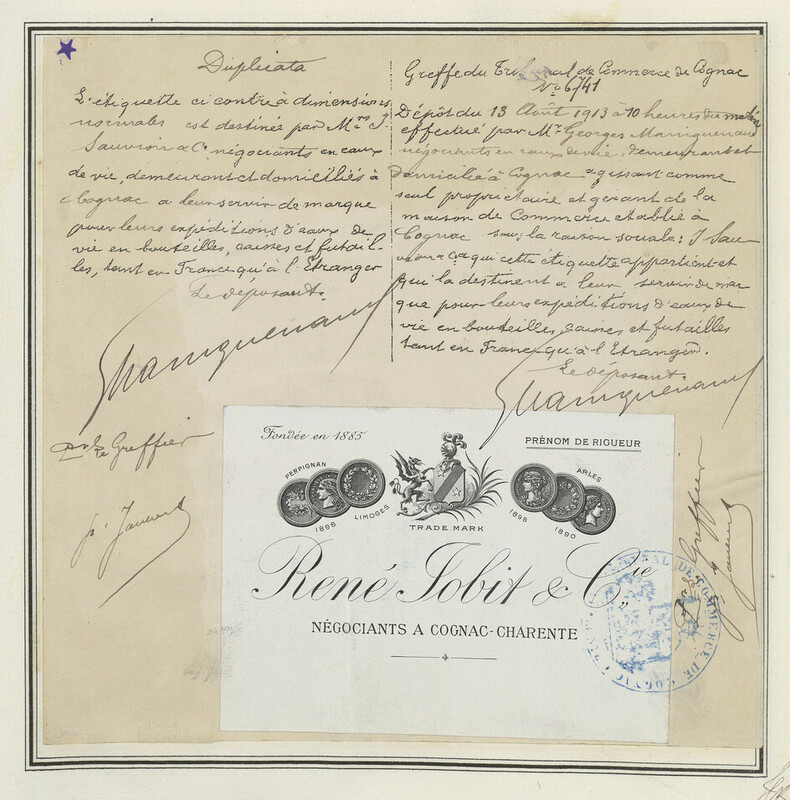 Duplicata
L'étiquette ci contre à dimensions
normales est destinée par Mrs J.
Sauvion & Cie négociants en eaux
de vie, demeurant et domiciliés à
Cognac a leur servir de marque
pour leurs expéditions d'eaux de
vie en bouteilles, caisses et futail-
les, tant en France qu'à l'Etranger
Le déposant.
Greffe du Tribunal de Commerce de Cognac
No 6741
Dépôt du 13 Août 1913 à 10 heures du matin
effectué par Mr Georges Maniquenaud
négociants en eaux de vie, demeurant et
domicilié à Cognac agissant comme
seul propriétaire et gérant de la
maison de Commerce établie à
Cognac sous la raison sociale: J Sau-
vion & Cie qui cette étiquette appartient et
qui la destinent a leur servir de mar
que pour leurs expéditions d'eaux de
vie en bouteilles, caisses et futailles
tant en France qu'à l'Etranger.
Le déposant.
le Greffier
Fondée en 1885
PRÉNOM DE RIGUEUR
PERPIGNAN
1898
LIMOGES
TRADE MARK
ARLES
1898
1890
René Jobit & Cie,
NÉGOCIANTS A COGNAC-CHARENTE
Greffier
TRIBUNAL DE COMMERCE DE COGNAC